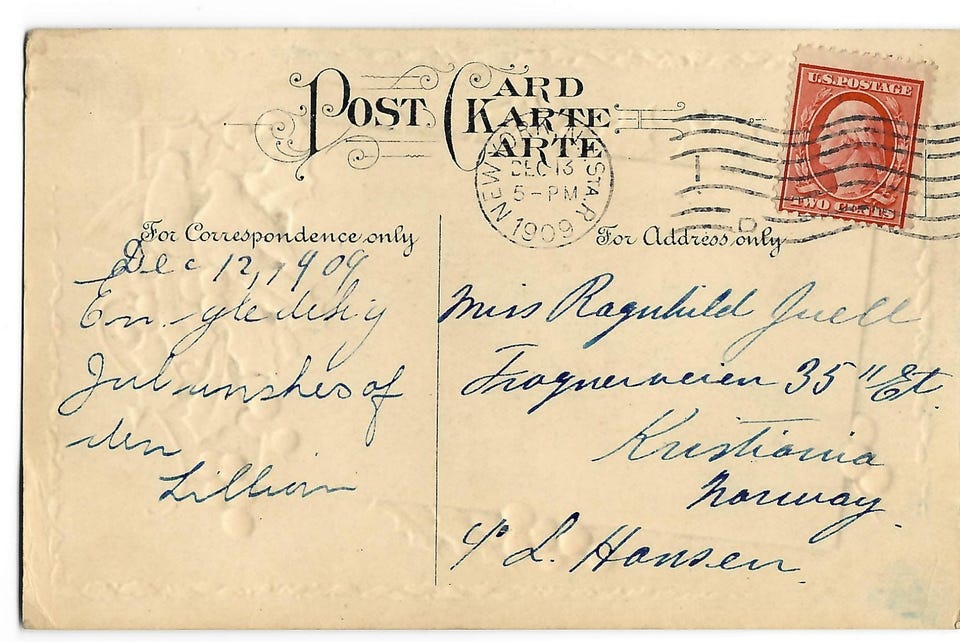 POST CARD
KARTE
CARTE
U.S. POSTAGE
TWO CENTS
NEW YORK, N.Y. STA. R
DEC 13
5-PM
1909
D
For Correspondence only
Dec 12, 1909
En gledelig
Jul ønskes af
den
Lillian
For Address only
Miss Ragnhild Juell
Frognerveien 35 II Et.
Kristiania
Norway
℅ L. Hansen.